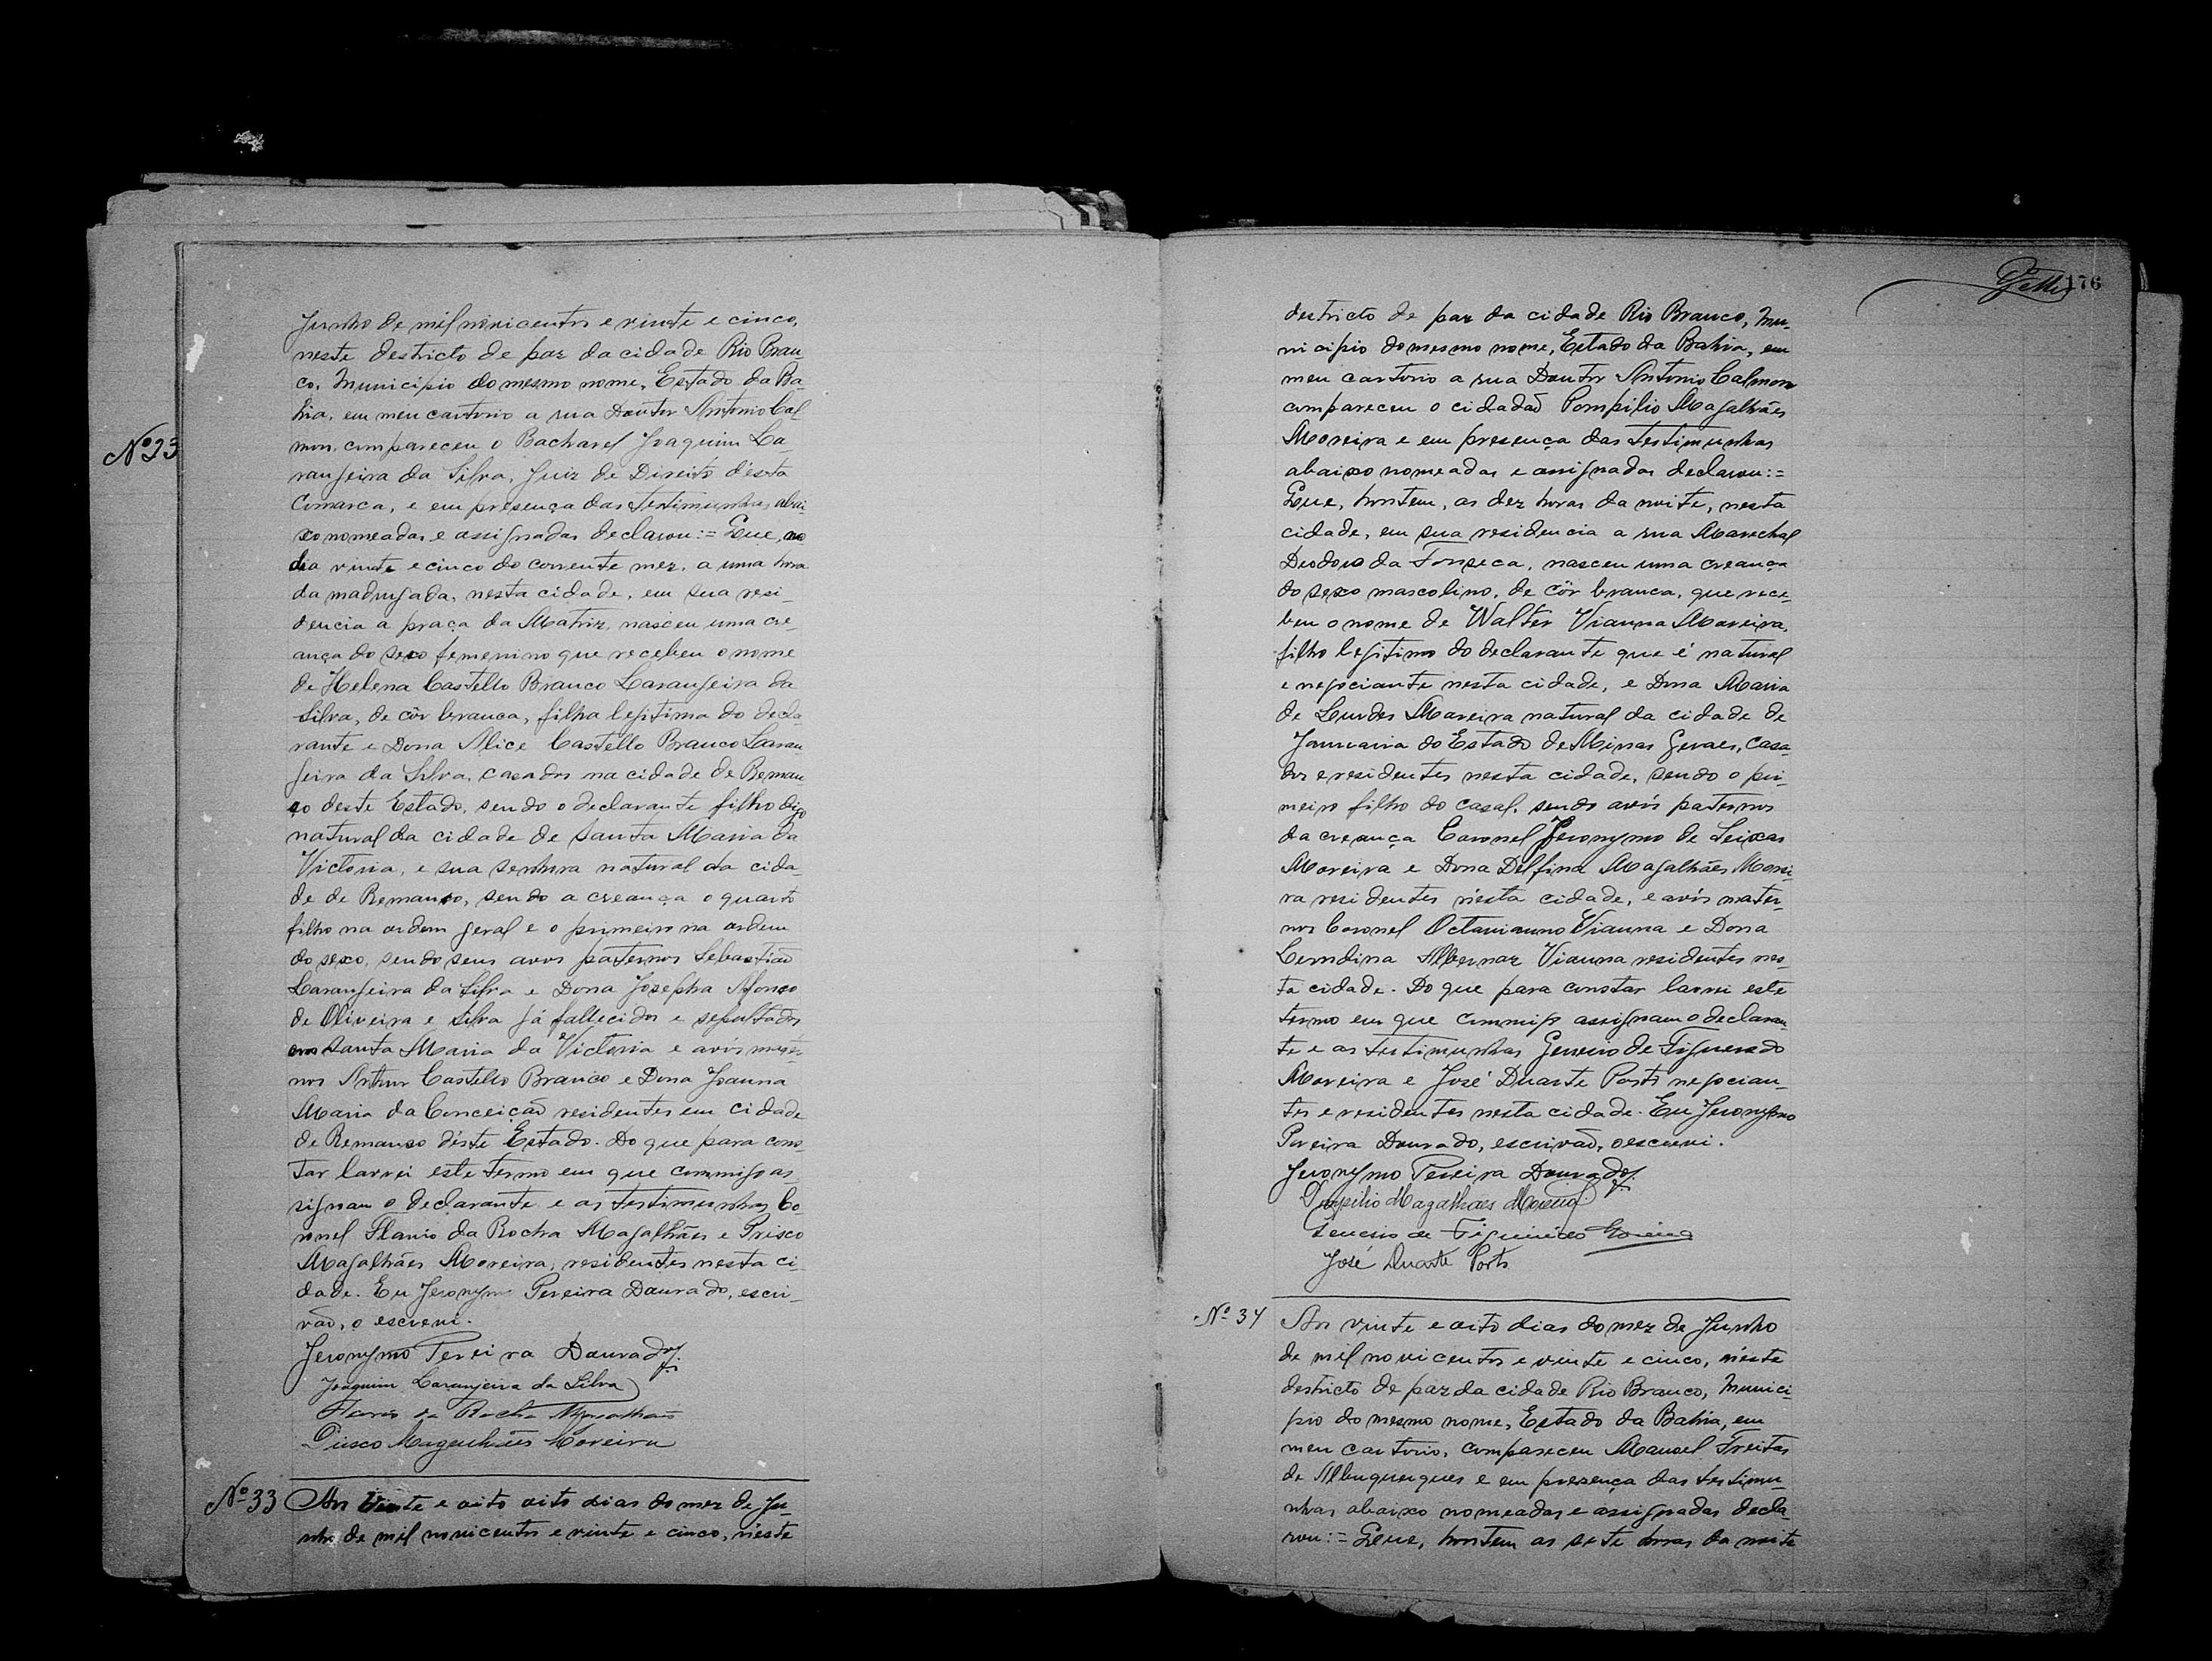 Nº 23
Junho de mil novicentos e vinte e cinco,
neste destricto de paz da cidade Rio Bran-
co, Municipio do mesmo nome, Estado da Ba-
hia, em meu cartorio a rua Doutor Antonio Cal
mon, compareceu o Bacharel Joaquim La-
ranjeira da Silva, Juiz de Direito désta
Comarca, e em presença das testimunhas abai
xo nomeadas e assignadas declarou:= Que, no
dia vinte e cinco do corrente mez, a uma hora
da madrugada, nesta cidade, em sua resi-
dencia a praça da Matriz, nasceu uma cre-
ança do sexo femenino que recebeu o nome
de Helena Castello Branco Laranjeira da
Silva, de côr branca, filha legitima do decla-
rante e Dona Alice Castello Branco Laran
jeira da Silva, casados na cidade de Reman
so deste Estado, sendo o declarante filho digo
natural da cidade de Santa Maria da
Victoria, e sua senhora natural da cida-
de de Remanso, sendo a creança o quarto
filho na ordem geral e o primeiro na ordem
do sexo, sendo seus avós paternos Sebastião
Laranjeira da Silva e Dona Josepha Afonso
de Oliveira e Silva já fallecidos e sepultados
em Santa Maria da Victoria e avós mater-
nos Arthur Castello Branco e Dona Joanna
Maria da Conceição residentes em cidade
de Remanso déste Estado. Do que para cons-
tar lavrei este termo em que commigo as-
signam o declarante e as testimunhas Co-
ronel Flavio da Rocha Magalhães e Prisco
Magalhães Moreira, residentes nesta ci-
dade. Eu Jeronymo Pereira Dourado, escri-
vão, o escrevi.
Jeronymo Pereira Dourado
Joaquim Laranjeira da Silva
Flavio da Rocha Magalhães
Prisco Magalhães Moreira
Nº 33 Aos Vinte e oito oito dias do mez de Ju-
nho de mil novicentos e vinte e cinco, néste
176
destricto de paz da cidade Rio Branco, Mu-
nicipio do mesmo nome, Estado da Bahia, em
meu cartorio a rua Doutor Antonio Calmon
compareceu o cidadão Pompilio Magalhães
Moreira e em presença das testimunhas
abaixo nomeadas e assignadas declarou:=
Que, hontem, as dez horas da noite, nesta
cidade, em sua residencia a rua Marechal
Deodoro da Fonseca, nasceu uma creança
do sexo mascolino, de côr branca, que rece-
beu o nome de Walter Vianna Moreira,
filho legitimo do declarante que é natural
e negociante nesta cidade, e Dona Maria
de Lurdes Moreira natural da cidade de
Januaria do Estado de Minas Geraes, casa-
dos e residentes nesta cidade, sendo o pri-
meiro filho do casal, sendo avós paternos
da creança Coronel Jeronymo de Seixas
Moreira e Dona Delfina Magalhães Morei-
ra residentes nésta cidade, e avós mater-
nos Coronel Octavianno Vianna e Dona
Cerndina Albernaz Vianna residentes nes-
ta cidade. Do que para constar lavrei este
termo em que commigo assignam o declaran-
te e as testimunhas Genesio de Figueredo
Moreira e José Duarte Porto negocian-
tes e residentes nesta cidade. Eu Jeronymo
Pereira Dourado, escrivão, o escrevi.
Jeronymo Pereira Dourado
Pompilio Magalhães Moreira
Genesio de Figueiredo Moreira
José Duarte Porto
Nº 34 Aos vinte e oito dias do mez de Junho
de mil novicentos e vinte e cinco, néste
destricto de paz da cidade Rio Branco, Munici-
pio do mesmo nome, Estado da Bahia, em
meu cartorio, compareceu Manoel Freitas
de Albuquerques e em presença das testimu-
nhas abaixo nomeadas e assignadas decla-
rou:= Que, hontem as sete horas da noite